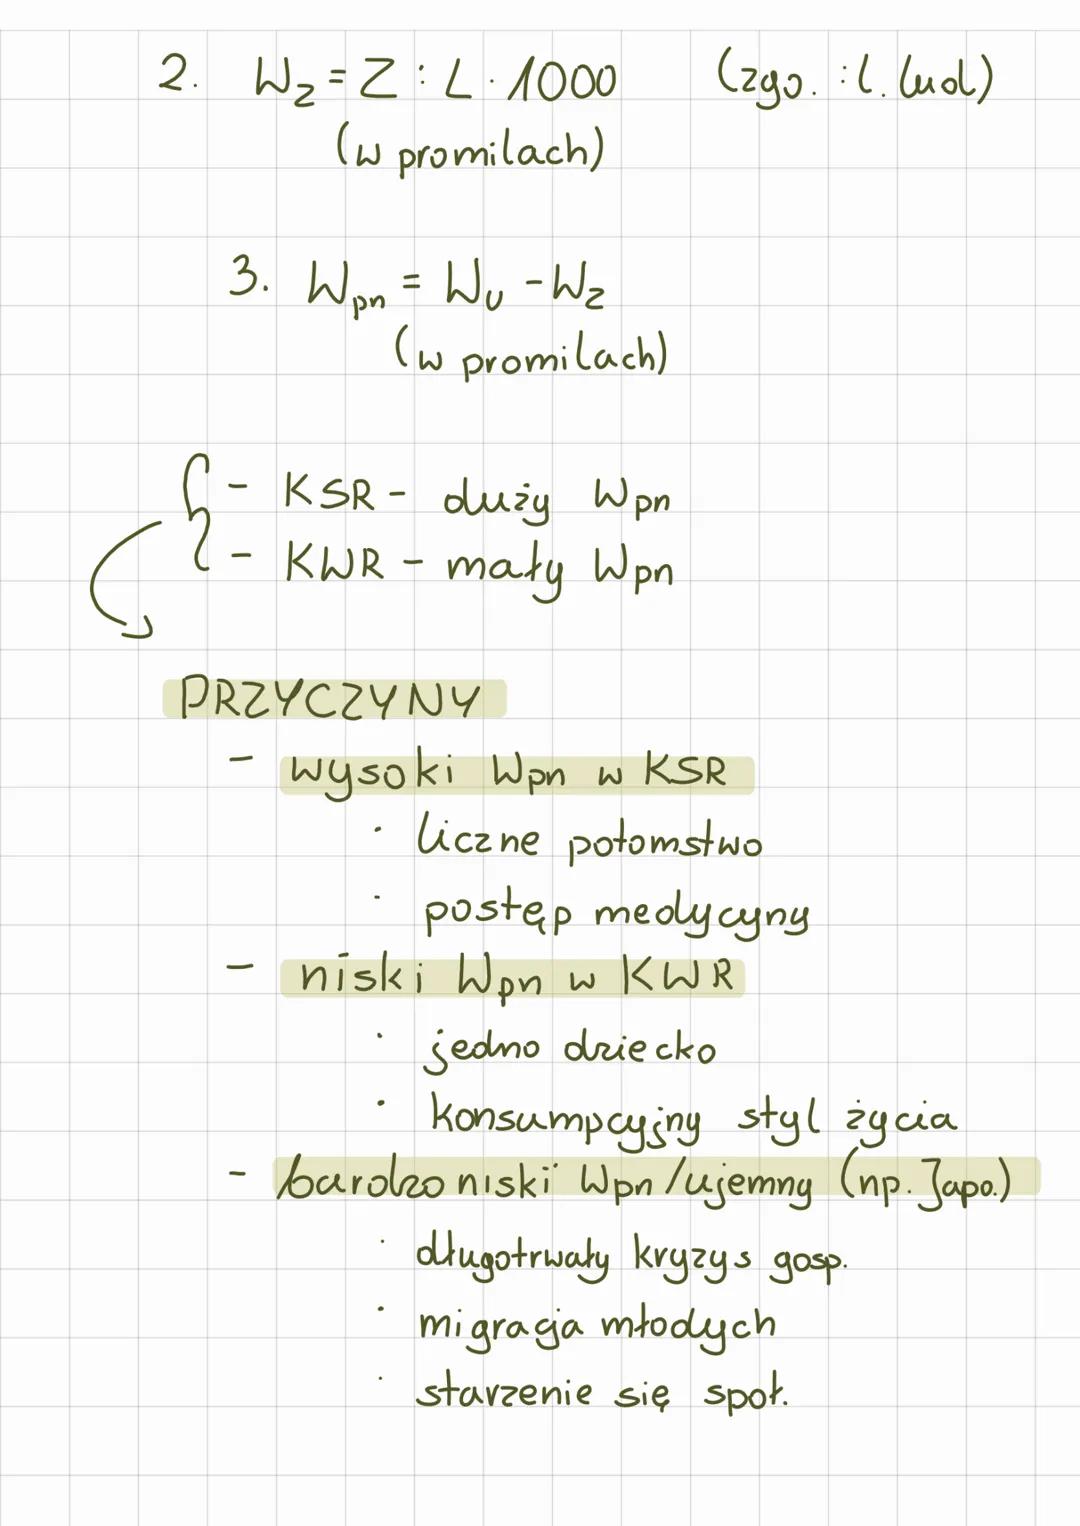 2. Wz = Z : L · 1000 (zgo. : l. lud)
(w promilach)
3. Wpn = Wu - Wz
(w promilach)
- KSR - duży Wpn
- KWR - mały Wpn
PRZYCZYNY
- wysoki Wpn w KSR
· liczne potomstwo
· postęp medycyny
- niski Wpn w KWR
· jedno dziecko
· konsumpcyjny styl życia
- bardzo niski Wpn/ujemny (np. Japo.)
· długotrwały kryzys gosp.
· migracja młodych
· starzenie się społ.